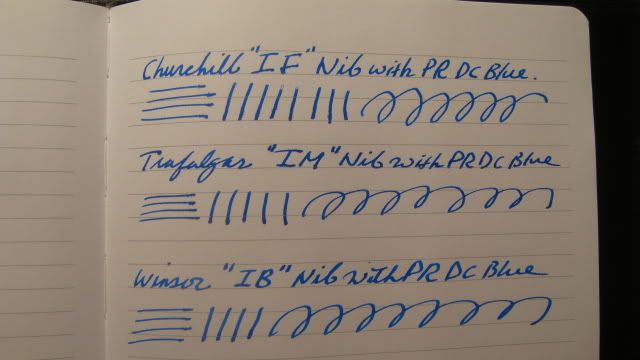 Churchill "IF" Nib with PR DC Blue.
Trafalgar "IM" Nib with PR DC Blue
Winsor "IB" Nib with PR DC Blue